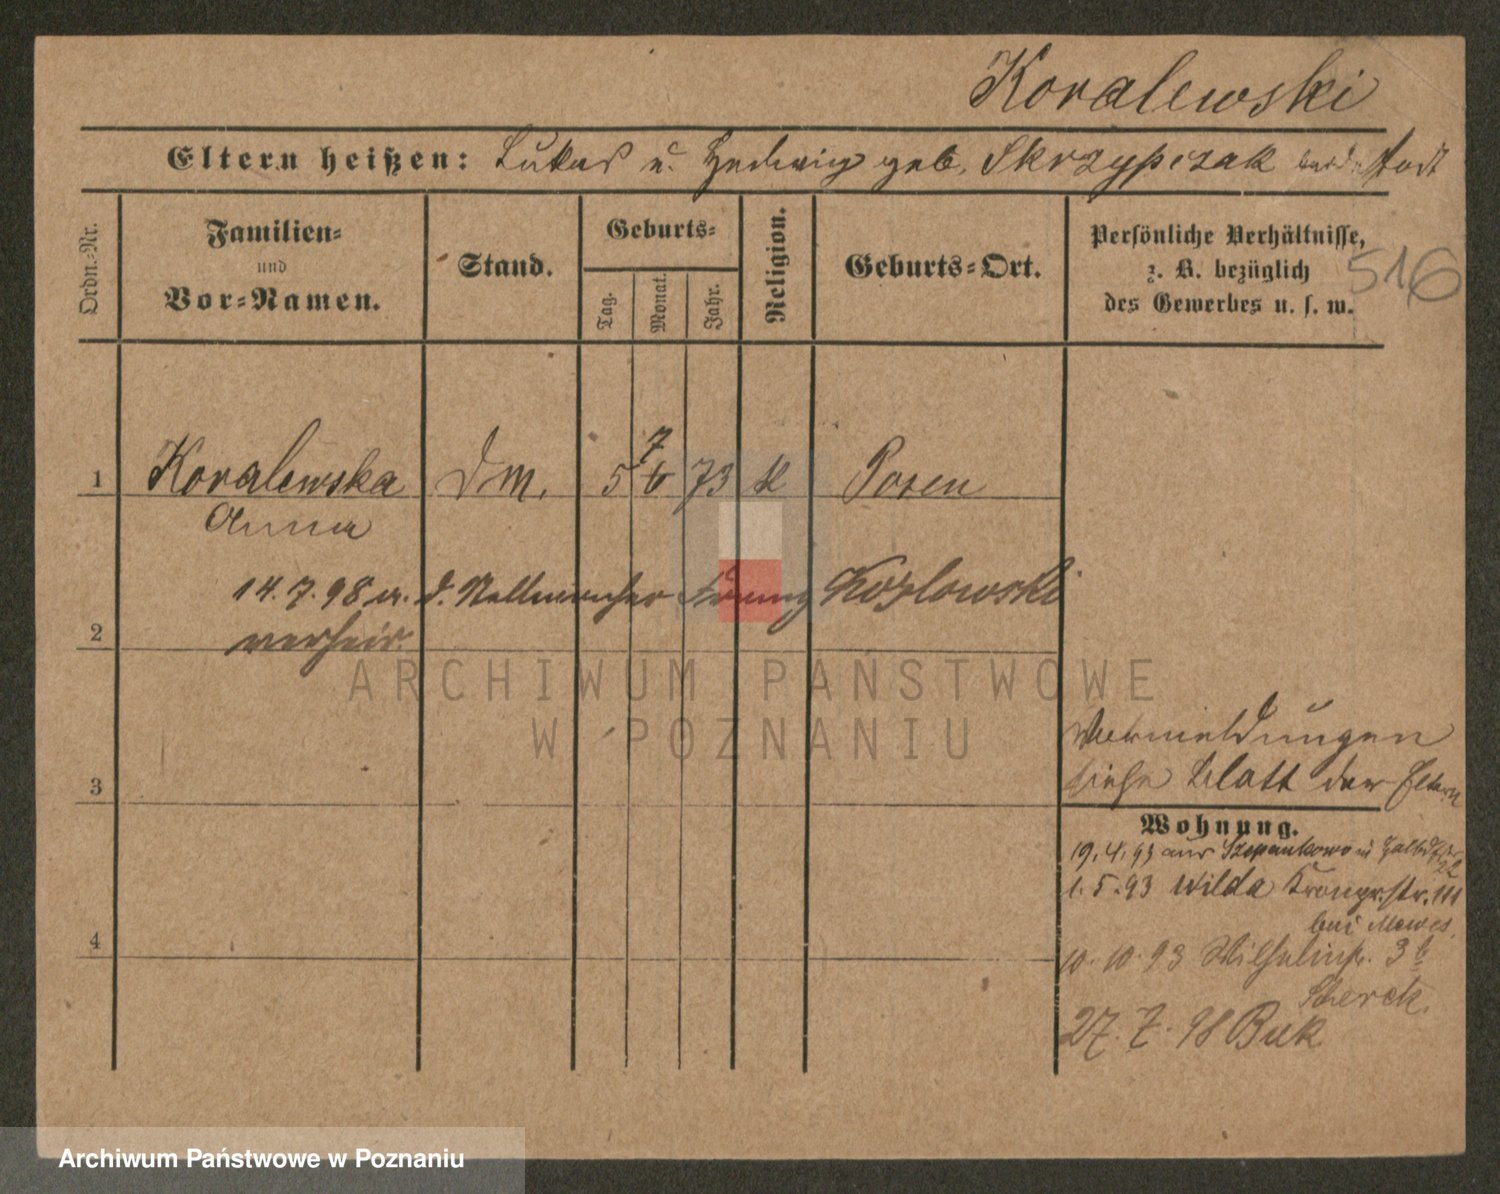 Koralewski
Eltern heißen: Lukas u. Hedwig geb. Skrzypczak beide todt
Ordn.-Nr.
Familien-
und
Vor-Namen.
Stand.
Geburts-
Tag.
Monat.
Jahr.
Religion.
Geburts-Ort.
Persönliche Verhältnisse,
z. B. bezüglich
des Gewerbes u. s. w.
516
7
1 Koralewska Dm. 5 6 73 k Posen
Anna
14.7.98 m. d. Franz Kozlowski
2 verheir.
ARCHIWUM PAŃSTWOWE
W POZNANIU
Vermeldungen
3 siehe Blatt der Eltern
Wohnung.
19.4.93 aus Szepankowo
22
1.5.93 Wilda Kronprstr. 111
bei Mewes.
4
10.10.93 Wilhelmstr. 3
Sterck.
27.7.98 Buk
Archiwum Państwowe w Poznaniu